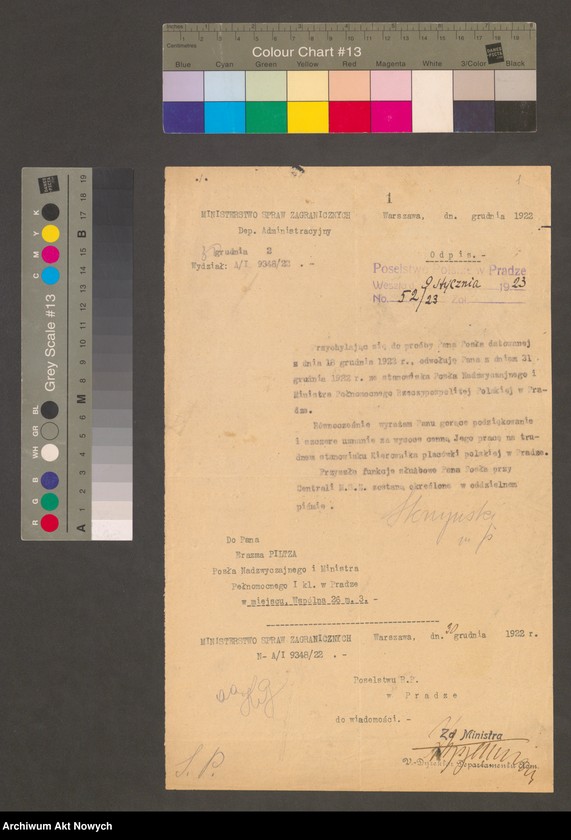 Inches
Centimetres
Colour Chart #13
Blue Cyan Green Yellow Red Magenta White 3/Color Black
Grey Scale #13
C M Y K
R G B WH GR BL
A 1 2 3 4 5 6 M 8 9 10 11 12 13 14 15 B 17 18 19
1
1
MINISTERSTWO SPRAW ZAGRANICZNYCH Warszawa, dn. grudnia 1922
Dep. Administracyjny
grudnia 2
Wydział: A/I 9348/22 . -
Odpis.-
Poselstwo w Pradze
9 stycznia 1923
No. 52/23 Zał.
Przychylając się do prośby Pana Posła datowanej
z dnia 18 grudnia 1922 r., odwołuję Pana z dniem 31
grudnia 1922 r. ze stanowiska Posła Nadzwyczajnego i
Ministra Pełnomocnego Rzeczypospolitej Polskiej w Pra-
dze.
Równocześnie wyrażam Panu gorące podziękowanie
i szczere uznanie za wysoce cenną Jego pracę na tru-
dnem stanowisku Kierownika placówki polskiej w Pradze.
Przyszłe funkcje służbowe Pana Posła przy
Centrali M.S.Z. zostaną określone w oddzielnem
piśmie.
Skrzyński
m/p
Do Pana
Erazma PILTZA
Posła Nadzwyczajnego i Ministra
Pełnomocnego I kl. w Pradze
w miejscu, Wspólna 26 m. 3. -
MINISTERSTWO SPRAW ZAGRANICZNYCH Warszawa, dn. grudnia 1922 r.
N- A/I 9348/22 . -
Poselstwu R.P.
w Pradze
do wiadomości. -
Za Ministra
Departamentu Adm.
Archiwum Akt Nowych